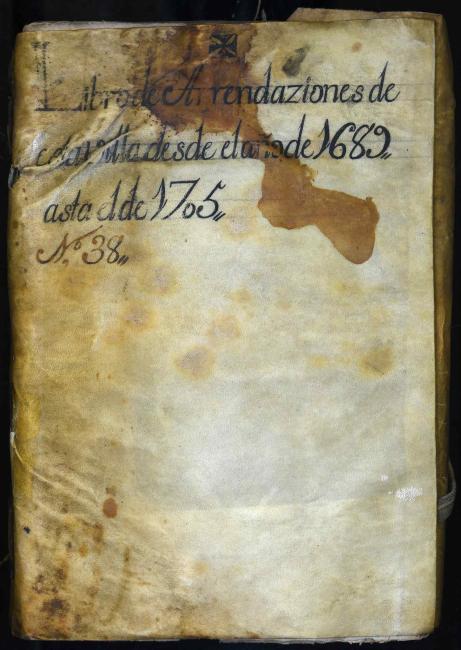 Libro de Arrendaziones de
esta Villa desde el año de 1689,,
asta el de 1705,,
N.º 38,,